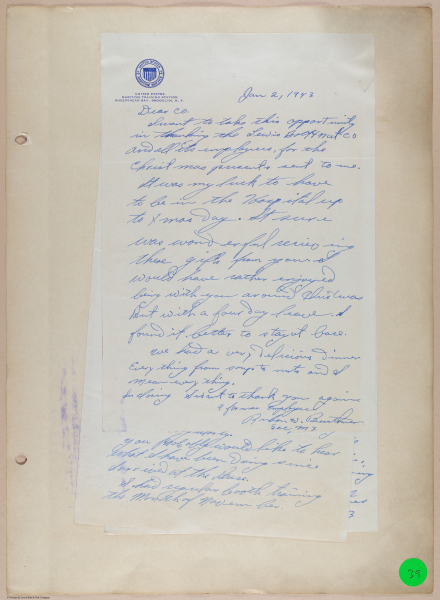 UNITED STATES
MARITIME TRAINING STATION
SHEEPSHEAD BAY, BROOKLYN, N. Y.
Jan 2, 1943
Dear Co.
I want to take this opportunity
in thanking the Lewis Co
and all the employees, for the
Christmas presents sent to me.
It was my luck to have
to be in the Hospital up
to Xmas Day. It sure
was wonderful recieving
these gifts from you and I
would have rather enjoyed
being with you around Christmas
but with a four day leave. I
found it better to stay at base.
We had a very delicious dinner
Everything from soup to nuts and I
mean every thing.
In closing I want to thank you again
A former Employee
you probably would like to hear
what I have been doing since
I arrived at the base.
I had regular booth training
the Month of November.
39